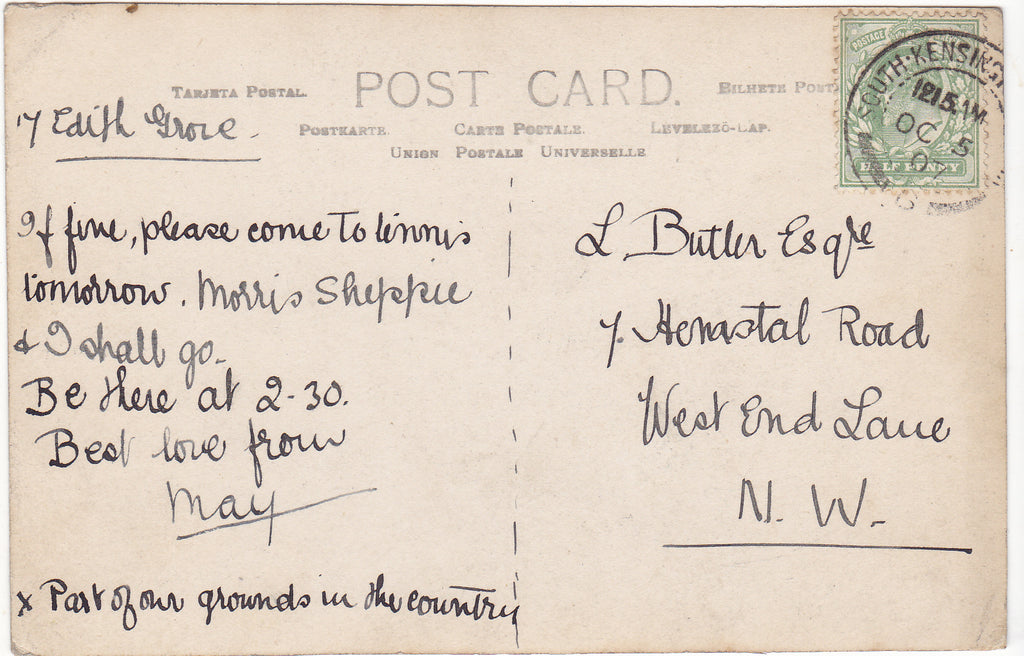 TARJETA POSTAL.
POST CARD.
BILHETE POST
POSTKARTE.
CARTE POSTALE.
LEVELEZŐ-LAP.
UNION POSTALE UNIVERSELLE
POSTAGE
HALF PENNY
SOUTH·KENSING
12 15 AM
OC 5
07
17 Edith Grove.
If fine, please come to tennis
tomorrow. Morris Sheppie
& I shall go.
Be there at 2-30.
Best love from
May
x Part of our grounds in the country
L. Butler Esqre
7. Hemstal Road
West End Lane
N. W.